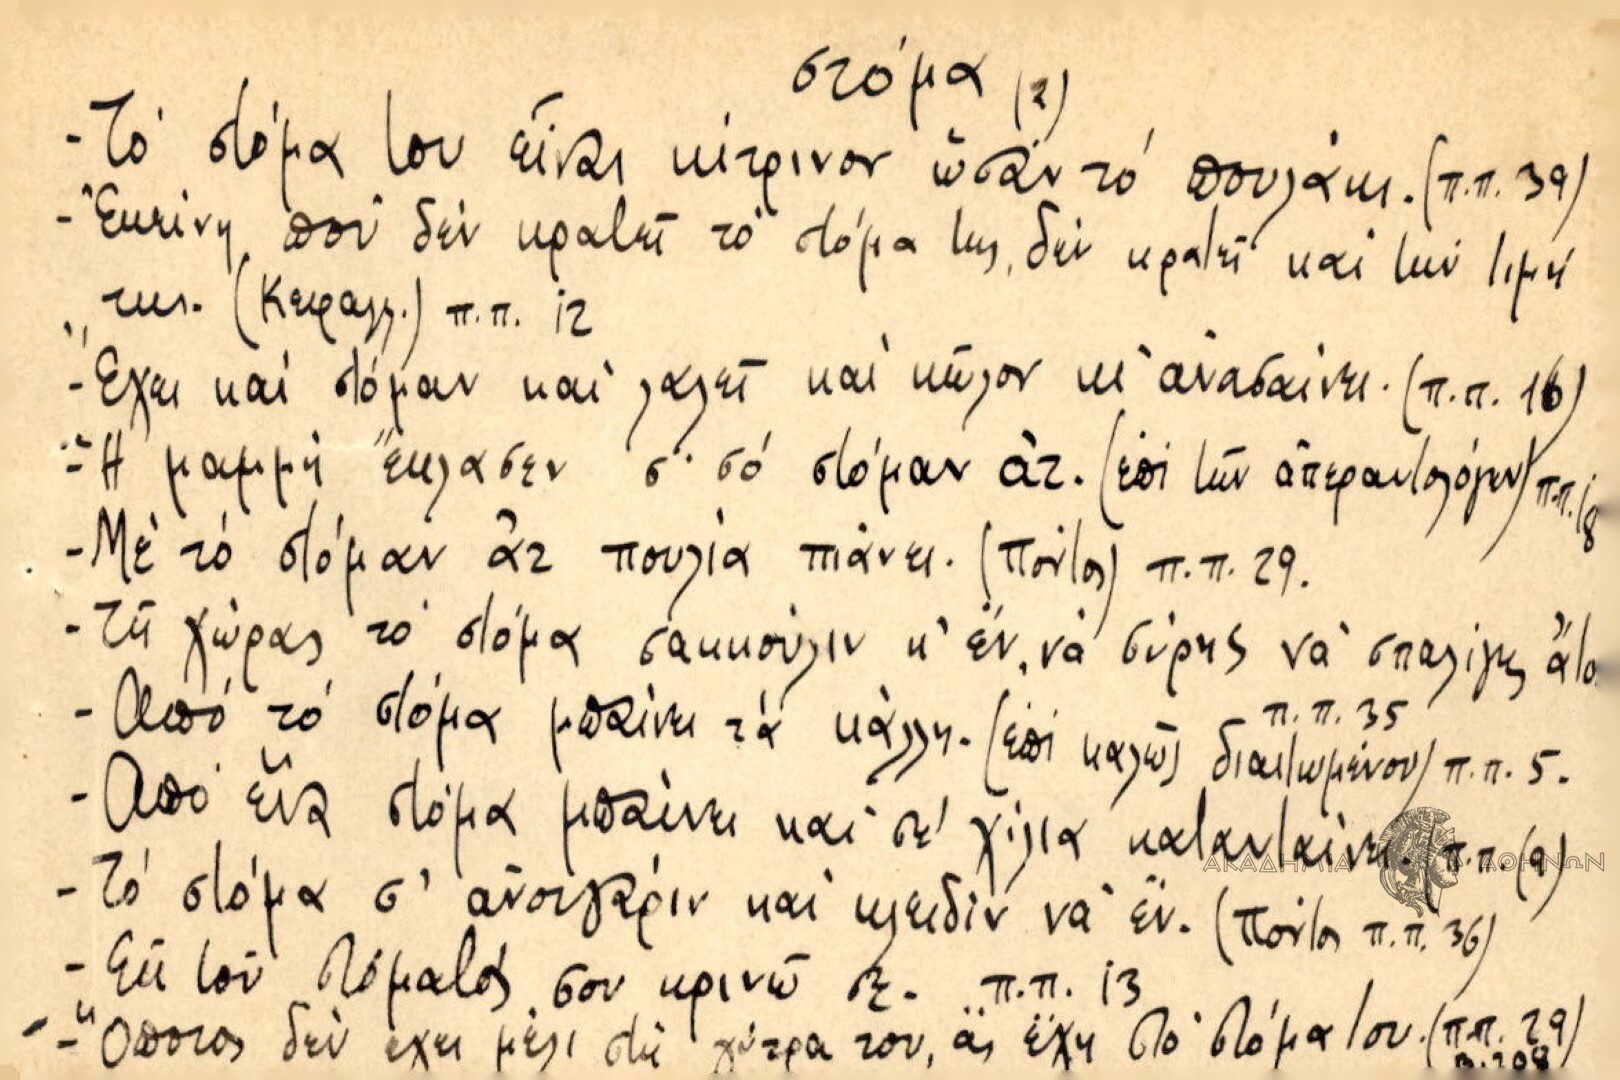 στόμα (2)
- Τό στόμα του εἶναι κίτρινον ὡσάν τό πουλάκι. (π.π. 39)
- Ἐκείνη πού δέν κρατεῖ τό στόμα της, δέν κρατεῖ καί τήν τιμή
της. (Κεφαλλ.) π.π. 12
- Ἔχει καί στόμαν καί λαλεῖ καί κῶλον κι ἀνασαίνει. (π.π. 16)
- Ἡ μαμμή ἔκλασεν σ' σό στόμαν ἀτ. (ἐπί τῶν ἀπεραντολόγων) π.π. 18
- Μέ τό στόμαν ἀτ πουλία πιάνει. (Πόντος) π.π. 29.
- Τῆ χώρας τό στόμα σακκούλιν κ' ἔν, νά σύρης νά σπαλίγης ἄτο
π.π. 35
- Ἀπό τό στόμα μπαίνει τά κάλλη. (ἐπί καλῶς διαιτωμένου) π.π. 5.
- Ἀπό ἕνα στόμα μπαίνει καί σέ χίλια κατανταίνει. (π.π. (9)
- Τό στόμα σ' ἀνοιγάριν καί κλειδίν νά ἔν. (Πόντος π.π. 36)
- Ἐκ τοῦ στόματός σου κρινῶ σε. π.π. 13
- Ὅποιος δέν ἔχει μέλι στή χύτρα του, ἄς ἔχη στό στόμα του. (π.π. 29)
π. 208
ΑΚΑΔΗΜΙΑ ΑΘΗΝΩΝ